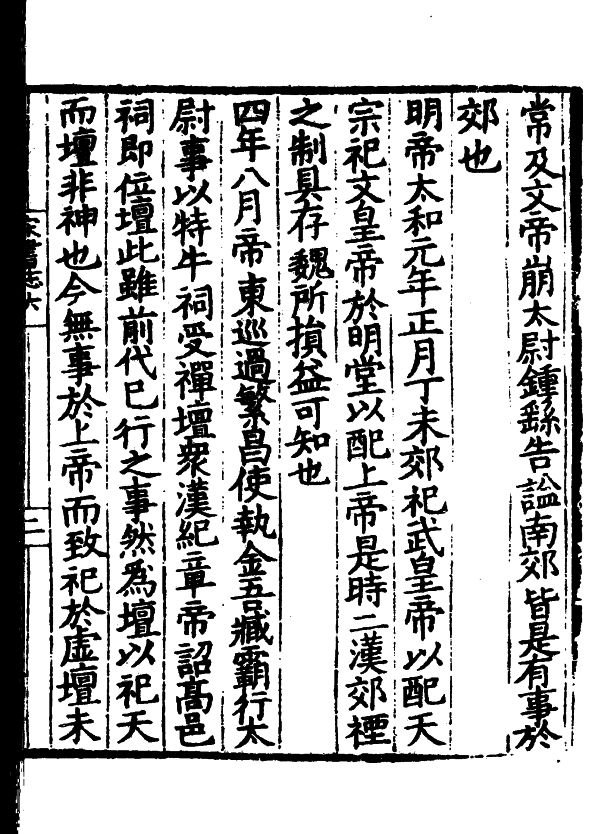 常及文帝崩太尉鍾繇告謚南郊皆是有事於
郊也
明帝太和元年正月丁未郊祀武皇帝以配天
宗祀文皇帝於明堂以配上帝是時二漢郊禋
之制具存魏所損益可知也
四年八月帝東巡過繁昌使執金吾臧霸行太
尉事以特牛祠受禪壇衆漢紀章帝詔高邑
祠即位壇此雖前代已行之事然爲壇以祀天
而壇非神也今無事於上帝而致祀於虚壇未
宋書志六
二